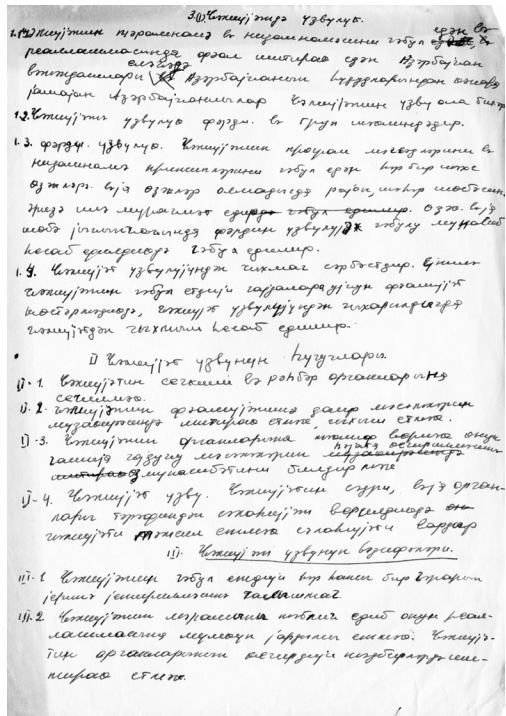 3.(I) Ҹәмијјәтдә үзвүлүк.
1.1. Ҹәмијјәтин мәрамнамә вә низамнамәсини гәбул едән вә
реаллашмасында фәал иштирак едән Азәрбајҹан
вәтәндашлары Азәрбајҹанын һүдудларындан кәнарда
јашајан Азәрбајҹанлылар Ҹәмијјәтин үзвү ола биләр
1.2. Ҹәмијјәтә үзвүлүк фәрди вә груп шәклиндәдир.
1.3. Фәрди үзвүлүк. Ҹәмијјәтин програм мәгсәдләрини вә
низамнамә принсипләрини гәбул едән һәр бир шәхс
өзәкләрә вә ја өзәкләр олмадыгда рајон, шәһәр шөбәсинә
әризә илә мүраҹиәт едир. Өзәк вә ја
шөбә јығынҹағында фәрдин үзвүлүјә гәбулу мүвафиг
һесаб едилдикдә гәбул едилир.
1.4. Ҹәмијјәт үзвүлүјүндән чыхмаг сәрбәстдир.
Ҹәмијјәтин гәбул етдији гајдалара ујғун фәалијјәт
көстәрмәдикдә, Ҹәмијјәт үзвүлүјүндән чыхарылдыгда
Ҹәмијјәтдән чыхмыш һесаб едилир.
II Ҹәмијјәт үзвүнүн һүгуглары.
II-1. Ҹәмијјәтин сечкили вә рәһбәр органларына
сечилмәк.
II-2. Ҹәмијјәтин фәалијјәтинә даир мәсәләләрин
музакирәсиндә иштирак етмәк, чыхыш етмәк.
II-3. Ҹәмијјәтин органларына тәклиф вермәк онун
гаршыја гојдуғу мәсәләләрин һәјата кечирилмәсинә
мүнасибәтини билдирмәк
II-4. Ҹәмијјәт үзвү. Ҹәмијјәтин сәдри, вә ја орган-
лары тәрәфиндән сәлаһијјәт верилдикдә
ҹәмијјәти тәмсил етмәк сәлаһијјәти вардыр
III. Ҹәмијјәт үзвүнүн вәзифәләри.
III-1 Ҹәмијјәтин гәбул етдији һәр һансы бир гәрарын
јеринә јетирилмәсинә чалышмаг.
III-2. Ҹәмијјәтин мәрамыны тәблиғ едиб онун реал-
лашмасына мүмкүн јардым етмәк. Ҹәмијјә-
тин органларынын кечирдији тәдбирләрдә иш-
тирак етмәк.